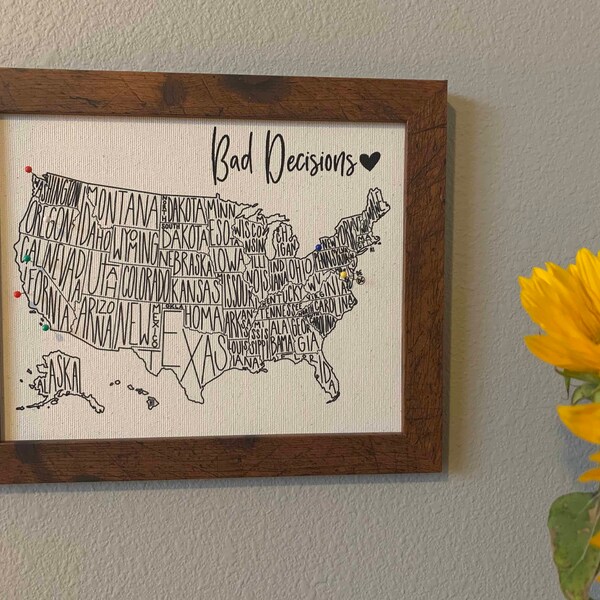 Bad Decisions
WASHINGTON
MONTANA
NORTH DAKOTA
MINN ESO TA
OREGON
IDAHO
WYOMING
SOUTH DAKOTA
WISCO NSIN
MICH IGAN
NEBRASKA
IOWA
CALIFORNIA
NEVADA
UTAH
COLORADO
KANSAS
MISSOURI
ILLINOIS
INDIANA
OHIO
KENTUCKY
VIRGINIA
ARIZONA
NEW MEXICO
OKLAHOMA
ARKANSAS
TENNESSEE
CAROLINA
TEXAS
LOUISIANA
MISSISSIPPI
ALABAMA
GEORGIA
FLORIDA
ALASKA